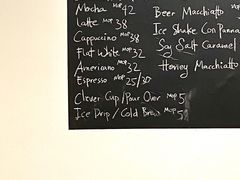 Mocha MOP 42
Latte MOP 38
Cappuccino MOP 38
Flat White MOP 32
Americano MOP 32
Espresso MOP 25/30
Clever Cup/Pour Over MOP 5
Ice Drip/Cold Brew MOP 5
Beer Macchiatto
Ice Shake Con Panna
Soy Salt Caramel
Honey Macchiatto